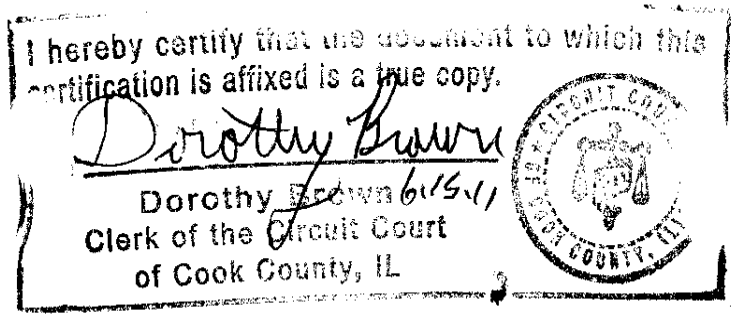 I hereby certify that the document to which this
certification is affixed is a true copy.
Dorothy Brown
Dorothy Brown 6.15.11
Clerk of the Circuit Court
of Cook County, IL
CIRCUIT COURT OF COOK COUNTY, ILL